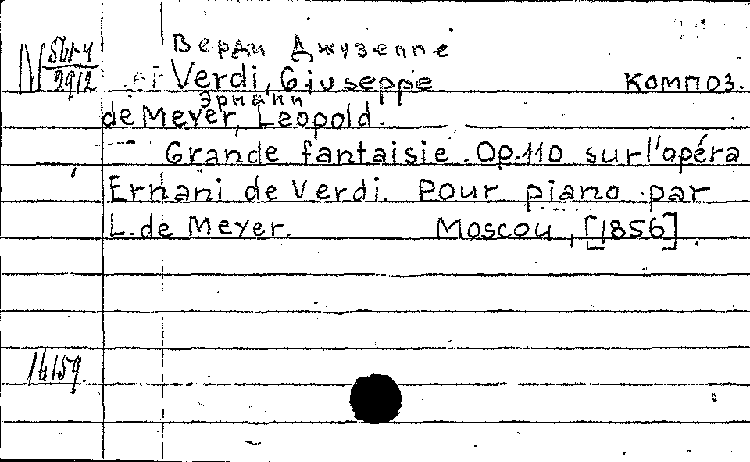 Верди Джузеппе
Verdi, Giuseppe Композ.
Эрнани
de Meyer, Leopold.
Grande fantaisie. Op.110 sur l'opéra
Ernani de Verdi. Pour piano par
L. de Meyer. Moscou, [1856].
16159